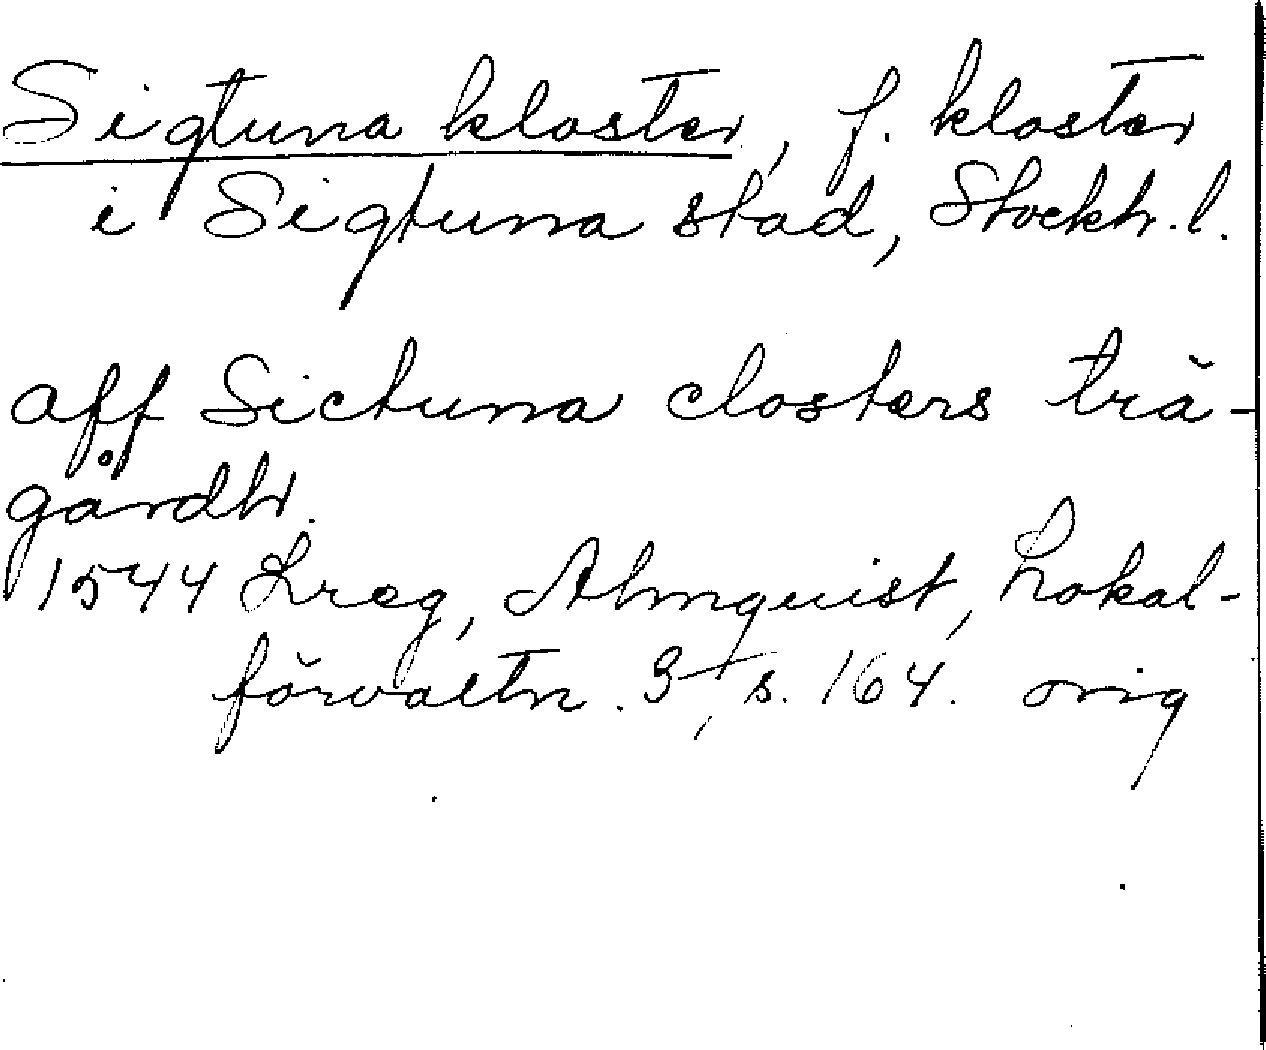 Sigtuna kloster, f. kloster
i Sigtuna stad, Stockh. l.
aff Sictuna closters trä-
gårdh.
1544 Lreg, Almquist, Lokal-
förvaltn. 3, s. 164. orig